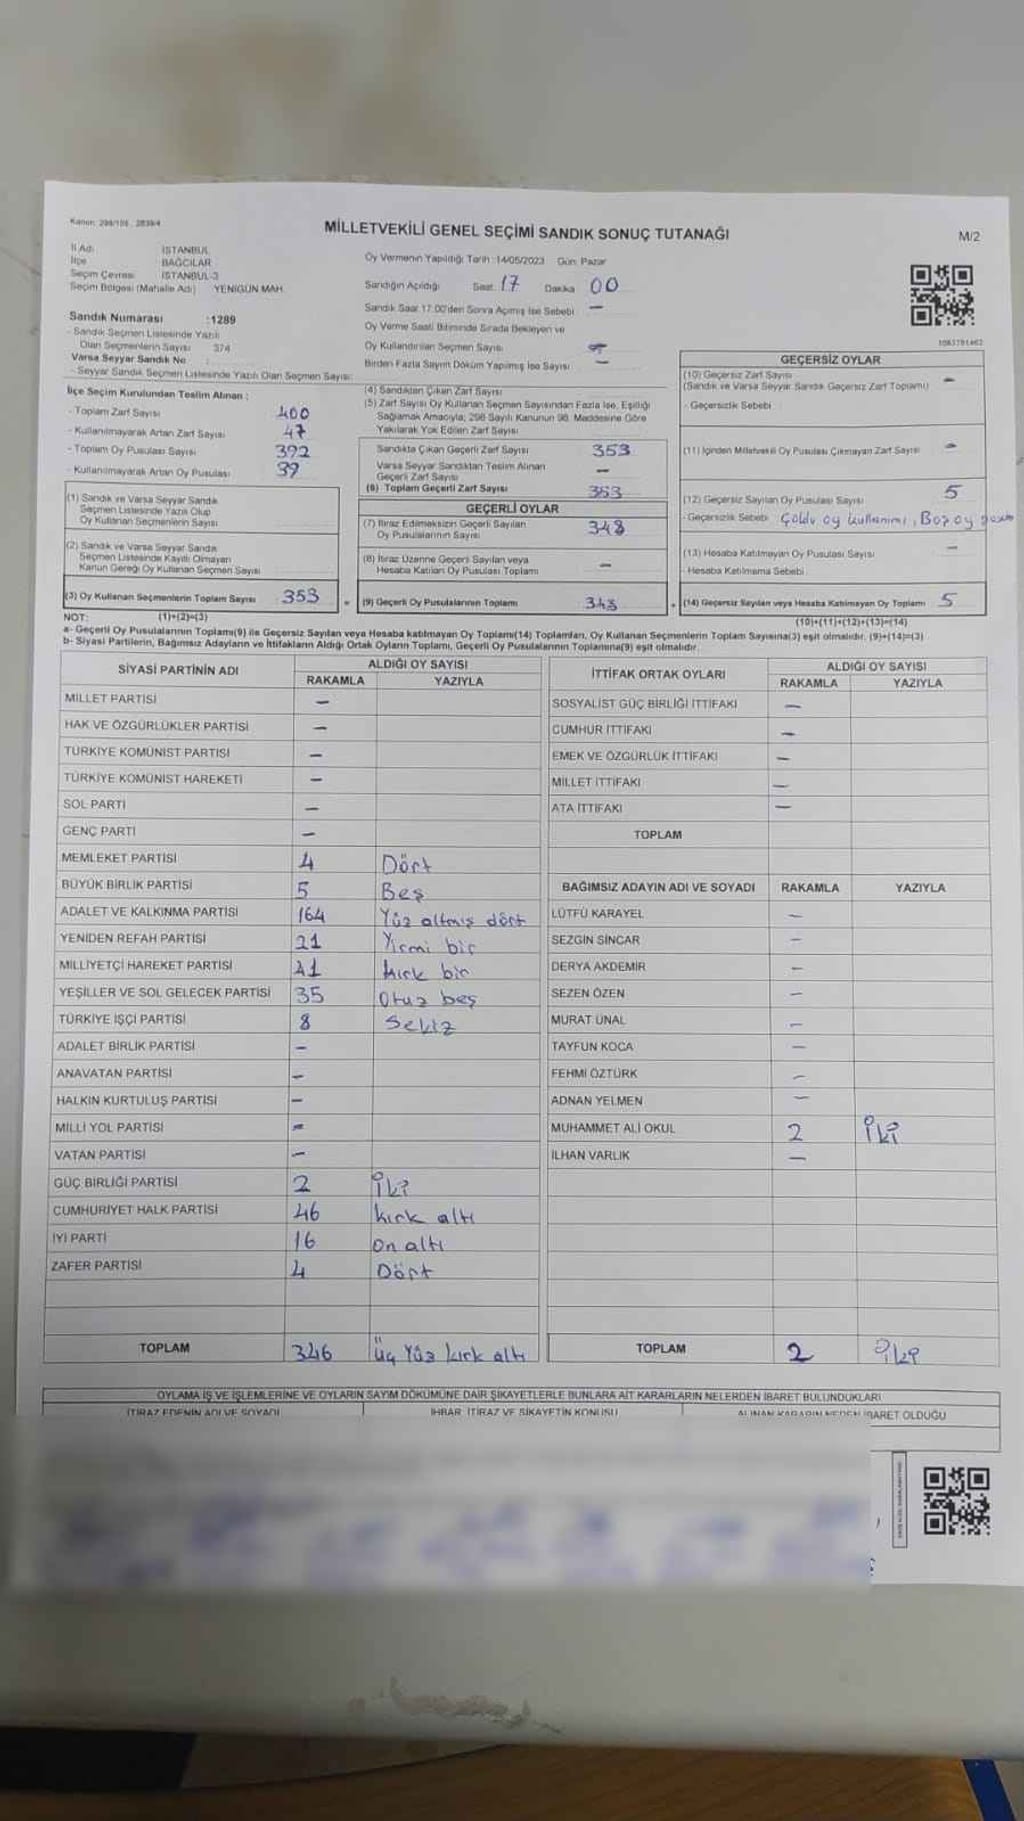 Kanun: 298/105 , 2839/4
MİLLETVEKİLİ GENEL SEÇİMİ SANDIK SONUÇ TUTANAĞI
M/2
İl Adı İSTANBUL
İlçe BAĞCILAR
Seçim Çevresi İSTANBUL-3
Seçim Bölgesi (Mahalle Adı) YENİGÜN MAH.
Sandık Numarası :1289
- Sandık Seçmen Listesinde Yazılı
Olan Seçmenlerin Sayısı 374
Varsa Seyyar Sandık No :
- Seyyar Sandık Seçmen Listesinde Yazılı Olan Seçmen Sayısı:
Oy Vermenin Yapıldığı Tarih :14/05/2023 Gün: Pazar
Sandığın Açıldığı Saat: 17 Dakika 00
Sandık Saat 17.00'den Sonra Açılmış İse Sebebi –
Oy Verme Saati Bitiminde Sırada Bekleyen ve
Oy Kullandırılan Seçmen Sayısı –
Birden Fazla Sayım Döküm Yapılmış İse Sayısı –
1063791462
İlçe Seçim Kurulundan Teslim Alınan :
- Toplam Zarf Sayısı 400
- Kullanılmayarak Artan Zarf Sayısı 47
- Toplam Oy Pusulası Sayısı 392
- Kullanılmayarak Artan Oy Pusulası 39
(1) Sandık ve Varsa Seyyar Sandık
Seçmen Listesinde Yazılı Olup
Oy Kullanan Seçmenlerin Sayısı
(2) Sandık ve Varsa Seyyar Sandık
Seçmen Listesinde Kayıtlı Olmayan
Kanun Gereği Oy Kullanan Seçmen Sayısı
(3) Oy Kullanan Seçmenlerin Toplam Sayısı 353
(4) Sandıktan Çıkan Zarf Sayısı
(5) Zarf Sayısı Oy Kullanan Seçmen Sayısından Fazla İse, Eşitliği
Sağlamak Amacıyla; 298 Sayılı Kanunun 98. Maddesine Göre
Yakılarak Yok Edilen Zarf Sayısı
Sandıkta Çıkan Geçerli Zarf Sayısı 353
Varsa Seyyar Sandıktan Teslim Alınan
Geçerli Zarf Sayısı –
(6) Toplam Geçerli Zarf Sayısı 353
GEÇERLİ OYLAR
(7) İtiraz Edilmeksizin Geçerli Sayılan
Oy Pusulalarının Sayısı 348
(8) İtiraz Üzerine Geçerli Sayılan veya
Hesaba Katılan Oy Pusulası Toplamı –
= (9) Geçerli Oy Pusulalarının Toplamı 348
GEÇERSİZ OYLAR
(10) Geçersiz Zarf Sayısı –
(Sandık ve Varsa Seyyar Sandık Geçersiz Zarf Toplamı)
- Geçersizlik Sebebi :
(11) İçinden Milletvekili Oy Pusulası Çıkmayan Zarf Sayısı –
(12) Geçersiz Sayılan Oy Pusulası Sayısı 5
- Geçersizlik Sebebi
(13) Hesaba Katılmayan Oy Pusulası Sayısı –
- Hesaba Katılmama Sebebi
+ (14) Geçersiz Sayılan veya Hesaba Katılmayan Oy Toplamı 5
NOT: (1)+(2)=(3) (10)+(11)+(12)+(13)=(14)
a- Geçerli Oy Pusulalarının Toplamı(9) ile Geçersiz Sayılan veya Hesaba katılmayan Oy Toplamı(14) Toplamları, Oy Kullanan Seçmenlerin Toplam Sayısına(3) eşit olmalıdır. (9)+(14)=(3)
b- Siyasi Partilerin, Bağımsız Adayların ve İttifakların Aldığı Ortak Oyların Toplamı, Geçerli Oy Pusulalarının Toplamına(9) eşit olmalıdır.
SİYASİ PARTİNİN ADI ALDIĞI OY SAYISI
RAKAMLA YAZIYLA
MİLLET PARTİSİ –
HAK VE ÖZGÜRLÜKLER PARTİSİ –
TÜRKİYE KOMÜNİST PARTİSİ –
TÜRKİYE KOMÜNİST HAREKETİ –
SOL PARTİ –
GENÇ PARTİ –
MEMLEKET PARTİSİ 4 Dört
BÜYÜK BİRLİK PARTİSİ 5 Beş
ADALET VE KALKINMA PARTİSİ 164 Yüz altmış dört
YENİDEN REFAH PARTİSİ 21 Yirmi bir
MİLLİYETÇİ HAREKET PARTİSİ 41 kırk bir
YEŞİLLER VE SOL GELECEK PARTİSİ 35 Otuz beş
TÜRKİYE İŞÇİ PARTİSİ 8 Sekiz
ADALET BİRLİK PARTİSİ –
ANAVATAN PARTİSİ –
HALKIN KURTULUŞ PARTİSİ –
MİLLİ YOL PARTİSİ –
VATAN PARTİSİ –
GÜÇ BİRLİĞİ PARTİSİ 2 İki
CUMHURİYET HALK PARTİSİ 46 kırk altı
İYİ PARTİ 16 On altı
ZAFER PARTİSİ 4 Dört
TOPLAM 346 Üç Yüz kırk altı
İTTİFAK ORTAK OYLARI ALDIĞI OY SAYISI
RAKAMLA YAZIYLA
SOSYALİST GÜÇ BİRLİĞİ İTTİFAKI –
CUMHUR İTTİFAKI –
EMEK VE ÖZGÜRLÜK İTTİFAKI –
MİLLET İTTİFAKI –
ATA İTTİFAKI –
TOPLAM
BAĞIMSIZ ADAYIN ADI VE SOYADI RAKAMLA YAZIYLA
LÜTFÜ KARAYEL –
SEZGİN SİNCAR –
DERYA AKDEMİR –
SEZEN ÖZEN –
MURAT ÜNAL –
TAYFUN KOCA –
FEHMİ ÖZTÜRK –
ADNAN YELMEN –
MUHAMMET ALİ OKUL 2 İki
İLHAN VARLIK –
TOPLAM 2 İki
OYLAMA İŞ VE İŞLEMLERİNE VE OYLARIN SAYIM DÖKÜMÜNE DAİR ŞİKAYETLERLE BUNLARA AİT KARARLARIN NELERDEN İBARET BULUNDUKLARI
İTİRAZ EDENİN ADI VE SOYADI İHBAR, İTİRAZ VE ŞİKAYETİN KONUSU ALINAN KARARIN NEDEN İBARET OLDUĞU